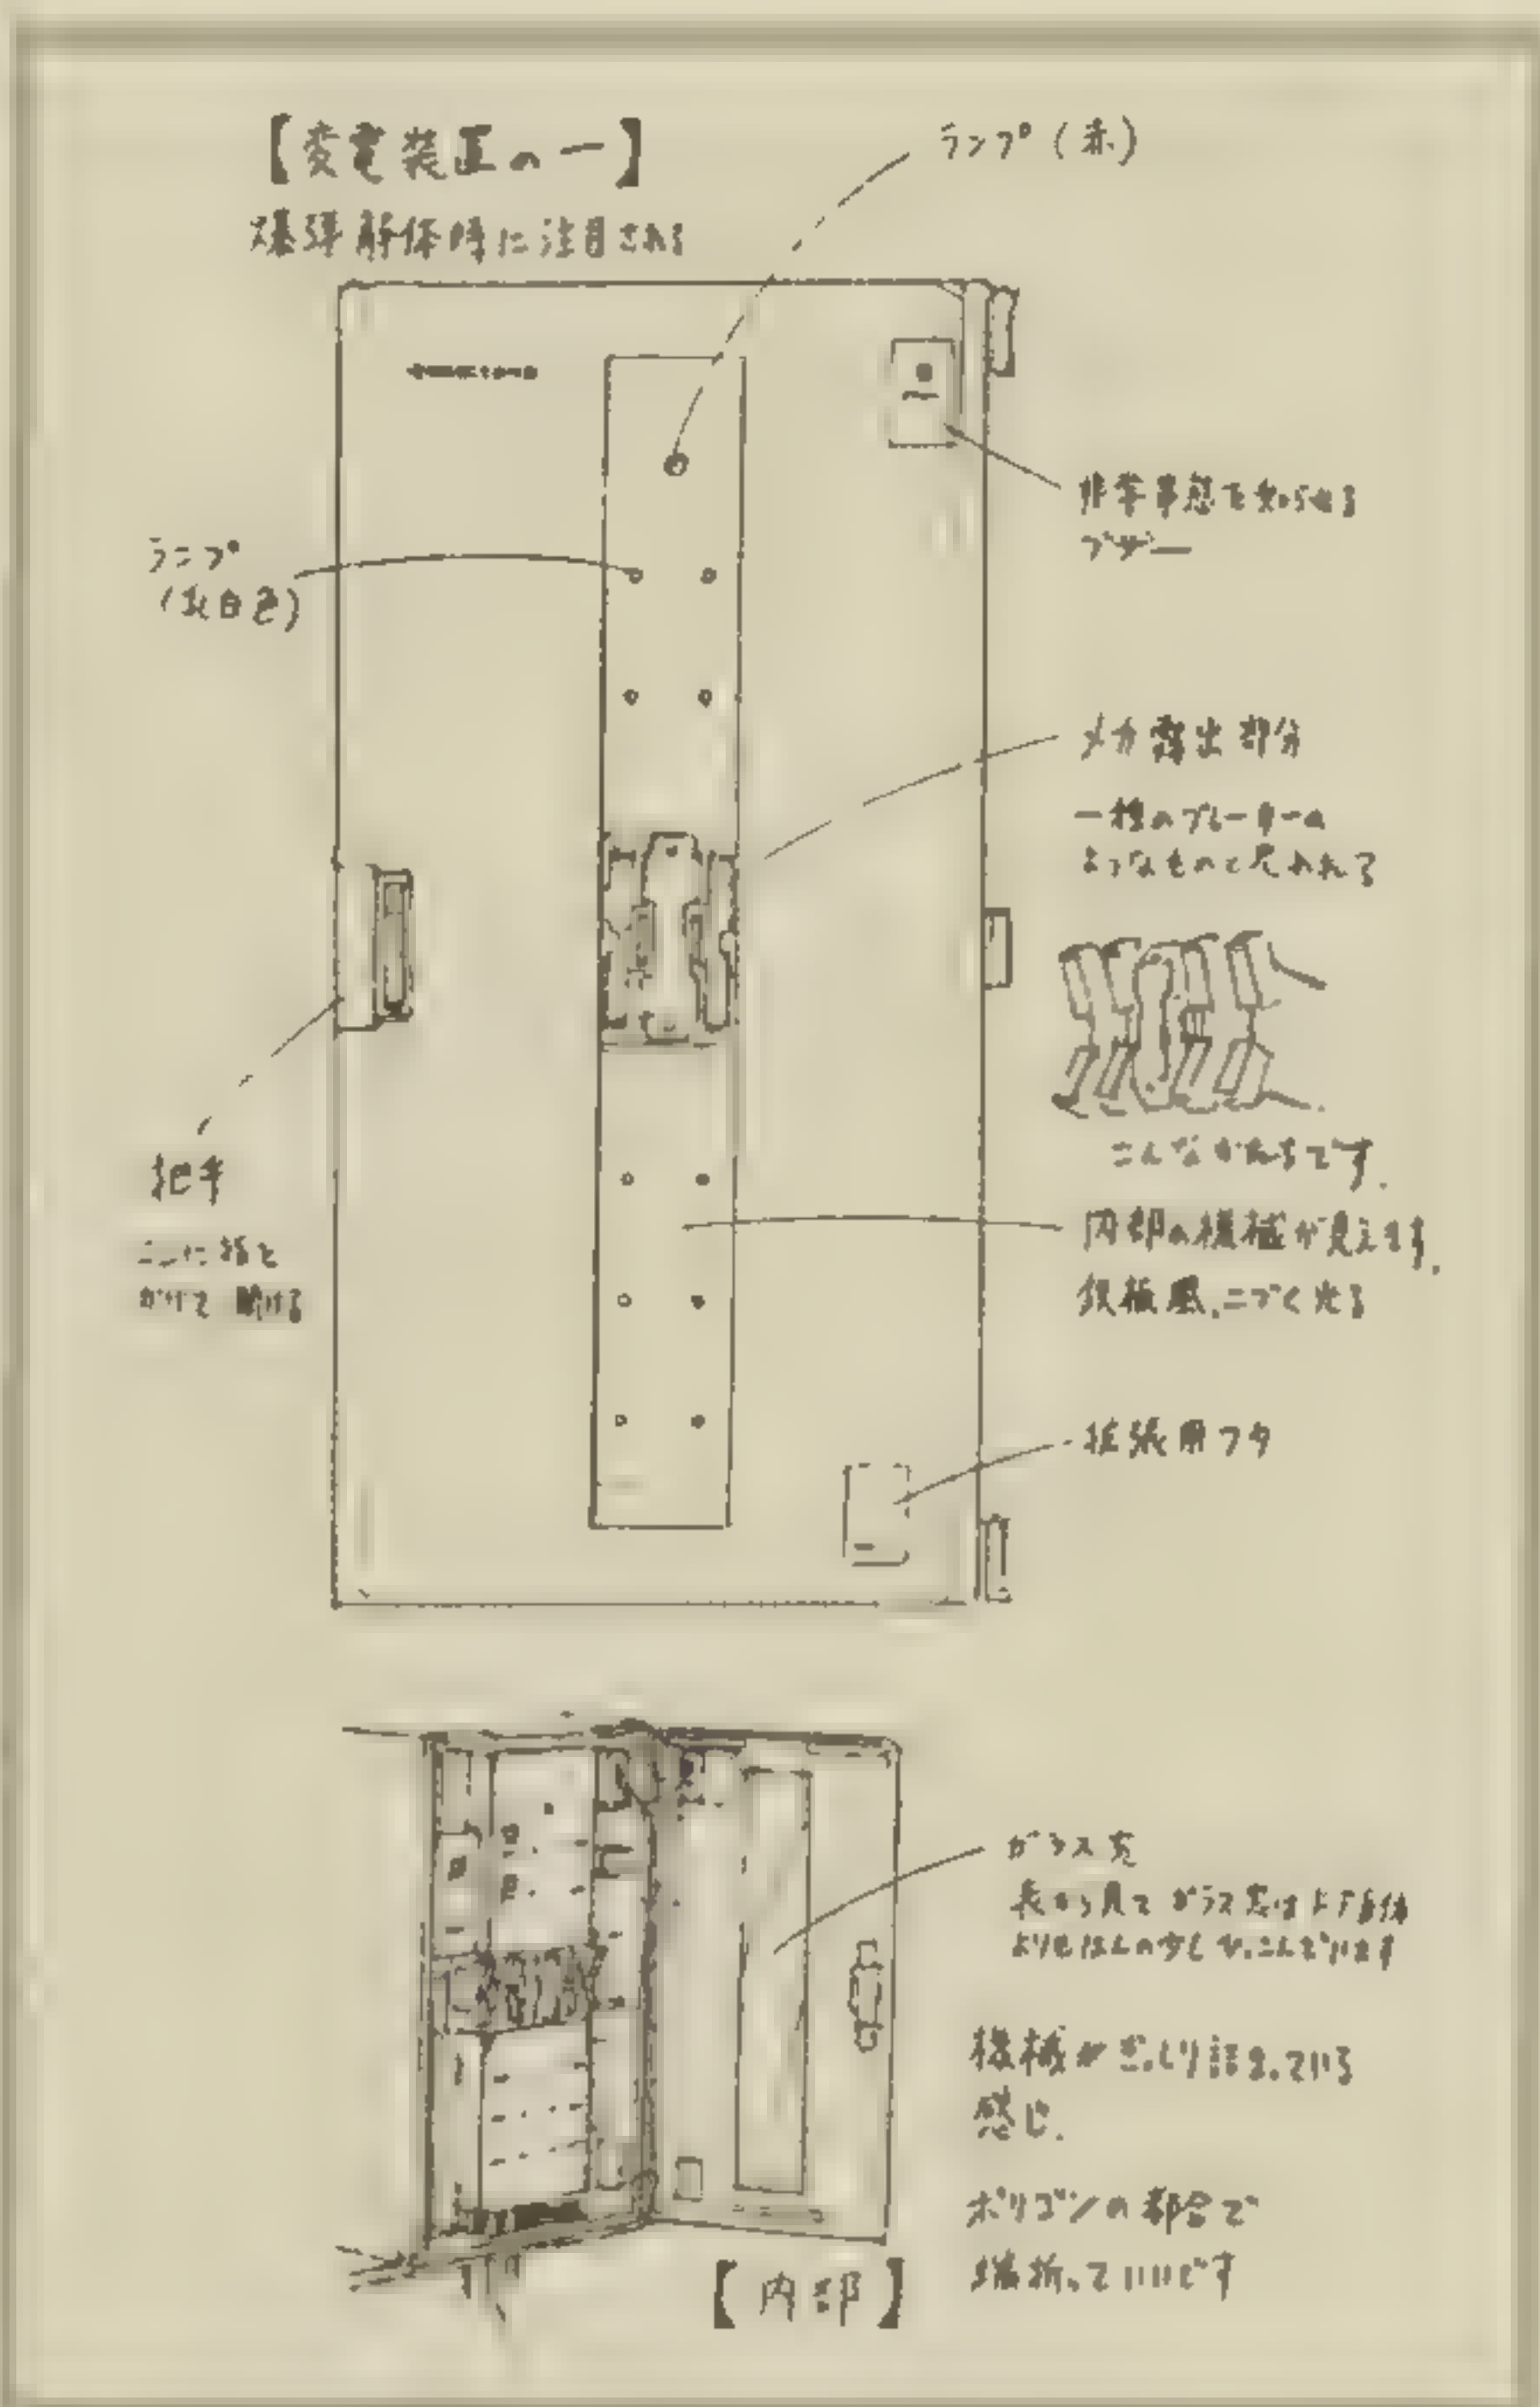 【変電装置の一】
爆弾解体時に注目される
ランプ(赤)
非常事態を知らせる
ブザー
ランプ
(乳白色)
メカ露出部分
一種のブレーカーの
ようなものと思われる
こんなかたちです.
把手
ここに指を
かけて 開ける
内部の機械が見えます.
鉄板風.ニブく光る
拡張用フタ
ガラス窓
表から見て ガラス窓は ドア自体
よりもほんの少しひっこんでいます
機械がぎっしり詰まっている
感じ.
ポリゴンの都合で
端折っていいです
【内部】